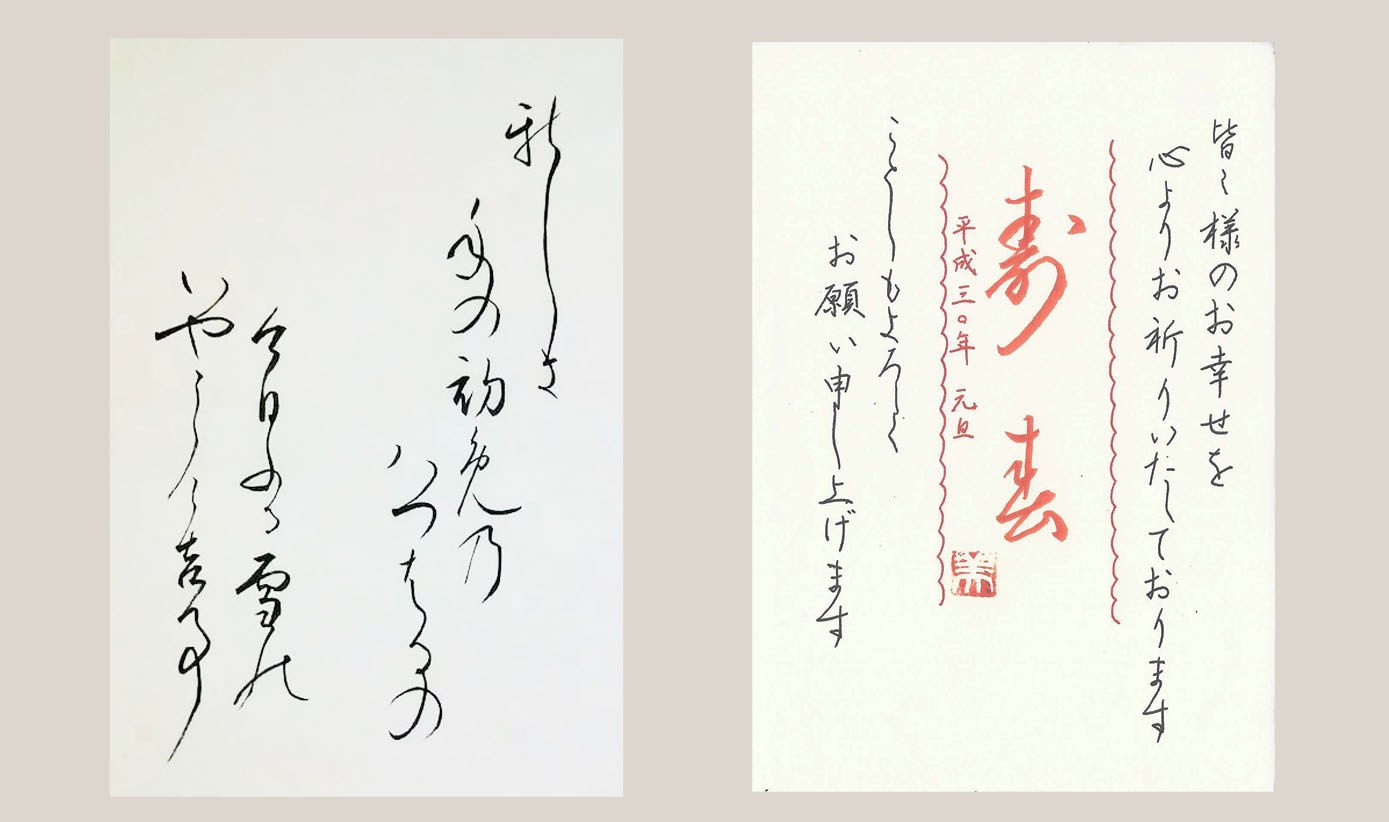 皆々様のお幸せを
心よりお祈りいたしております
寿春
平成三〇年 元旦
ことしもよろしく
お願い申し上げます
新しき
年の初免乃
ハつはるの
今日ふる雪の
いやしけ吉事